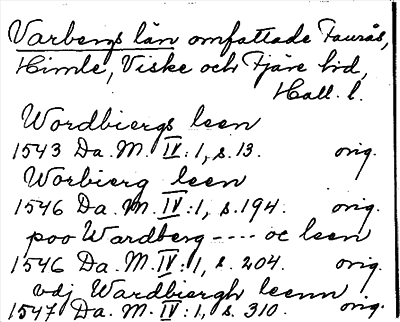 Varbergs län omfattade Faurås,
Himle, Viske och Fjäre hd,
Hall. l.
Wordbiergs leen
1543 Da. M. IV:1, s. 13. orig.
Worbierg leen
1546 Da. M. IV:1, s. 194. orig.
poo Wardberg ---- oc leen
1546 Da. M. IV:1, s. 204. orig.
vdj Wardbiergh leenn
1547 Da. M. IV:1, s. 310. orig.